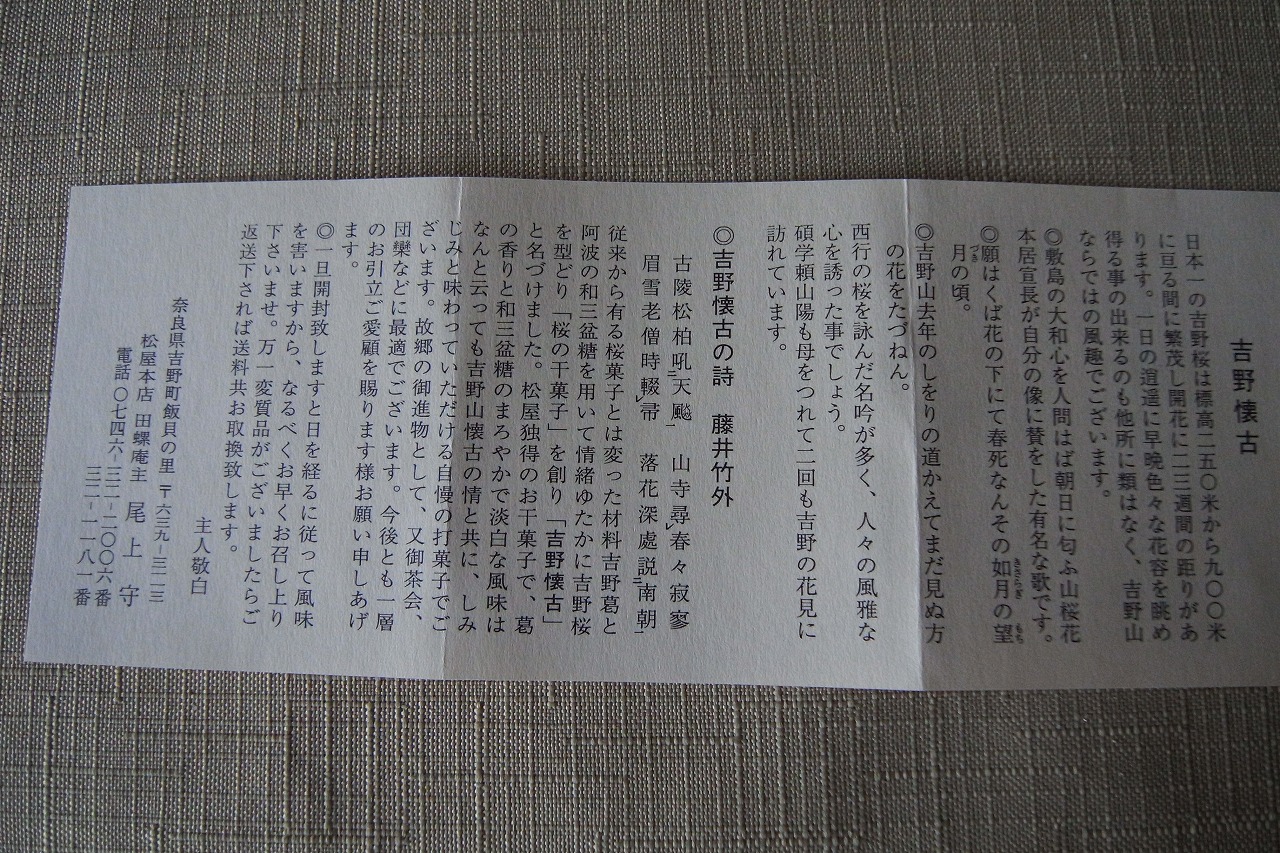 吉野懐古
日本一の吉野桜は標高二五〇米から九〇〇米
に亘る間に繁茂し開花に二三週間の距りがあ
ります。一日の逍遥に早晩色々な花容を眺め
得る事の出来るのも他所に類はなく、吉野山
ならではの風趣でございます。
◎敷島の大和心を人問はば朝日に匂ふ山桜花
本居宣長が自分の像に賛をした有名な歌です。
◎願はくば花の下にて春死なんその如月の望
月の頃。
◎吉野山去年のしをりの道かえてまだ見ぬ方
の花をたづねん。
西行の桜を詠んだ名吟が多く、人々の風雅な
心を誘った事でしょう。
碩学頼山陽も母をつれて二回も吉野の花見に
訪れています。
◎吉野懐古の詩 藤井竹外
古陵松柏吼天飈 山寺尋春々寂寥
眉雪老僧時輟帚 落花深處説南朝
従来から有る桜菓子とは変った材料吉野葛と
阿波の和三盆糖を用いて情緒ゆたかに吉野桜
を型どり「桜の干菓子」を創り「吉野懐古」
と名づけました。松屋独得のお干菓子で、葛
の香りと和三盆糖のまろやかで淡白な風味は
なんと云っても吉野山懐古の情と共に、しみ
じみと味わっていただける自慢の打菓子でご
ざいます。故郷の御進物として、又御茶会、
団欒などに最適でございます。今後とも一層
のお引立ご愛顧を賜ります様お願い申しあげ
ます。
◎一旦開封致しますと日を経るに従って風味
を害いますから、なるべくお早くお召し上り
下さいませ。万一変質品がございましたらご
返送下されば送料共お取換致します。
主人敬白
奈良県吉野町飯貝の里 〒六三九-三一一三
松屋本店 田螺庵主 尾上守
電話〇七四六-三二-二〇〇六番
三二-一一八一番